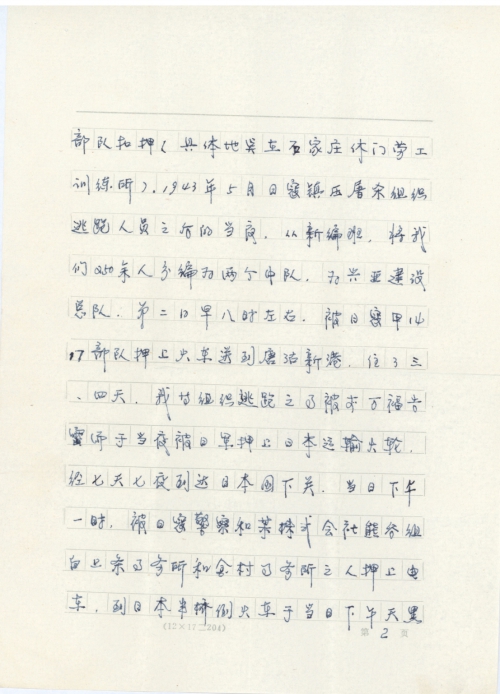 部队扣押（具体地点在石家庄休门劳工
训练所）。1943年5月日寇镇压屠杀组织
逃跑人员之后的当夜，从新编班，将我
们200余人分编为两个中队，为兴亚建设
总队。第二日早八时左右，被日寇甲14
17部队押上火车送到唐沽新港，住了三
、四天，我等组织逃跑之事被宋万福告
密而于当夜被日寇押上日本运输大轮，
经七天七夜到达日本国下关，当日下午
一时，被日寇警察和某株式会社熊谷组
事务所和 事务所之人押上电
车，到日本 倒火车于当日下午天黑
(12×17=204)
第 2 页